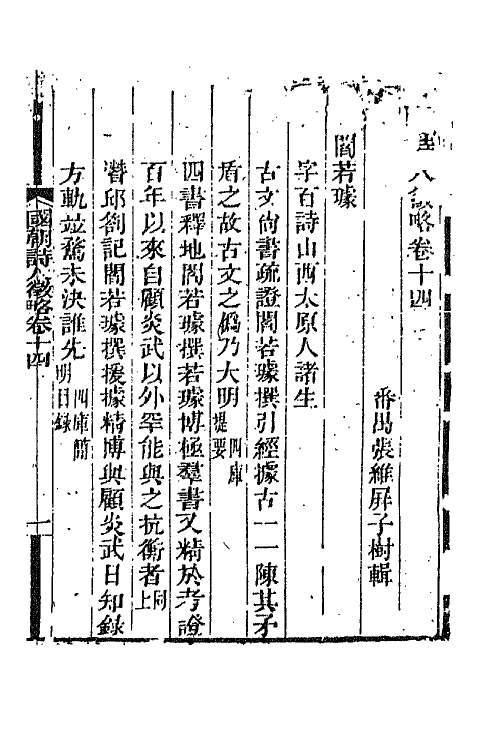 八徵略卷十四
番禺張維屏子樹輯
閻若璩
字百詩山西太原人諸生
古文尙書疏證閻若璩撰引經據古一一陳其矛
盾之故古文之僞乃大明四庫提要
四書釋地閻若璩撰若璩博極羣書又精於考證
百年以來自顧炎武以外罕能與之抗衡者同上
潛邱劄記閻若璩撰援據精博與顧炎武日知錄
方軌並騖未決誰先四庫簡明目錄
國朝詩人徵略卷十四
一